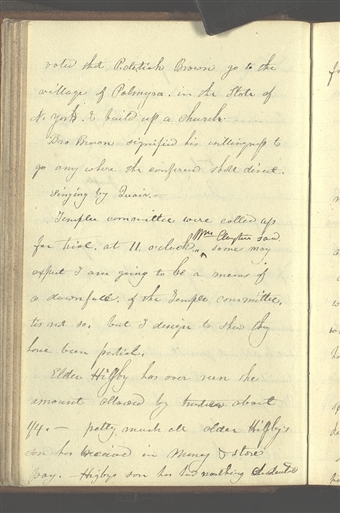 voted that Peletiah Brown go to the
village of Palmyra. in the State of
N. York. & build up a church
Bro Brown signified his willingness to
go any where the conference shall direct.
singing by Quoir. -
Temple committee were called up
for trial. at 11. o'clock. ^ Wm Clayton said some may
expect I am going to be a means of
a downfall. of the Temple committee.
tis not so. but I design to shew they
have been partial.
Elder Higby has over run the
amount allowed by trustees about
1/4. - pretty much all elder Higby's
son has received in Money & store
pay. - Higbys son has had nothing credited